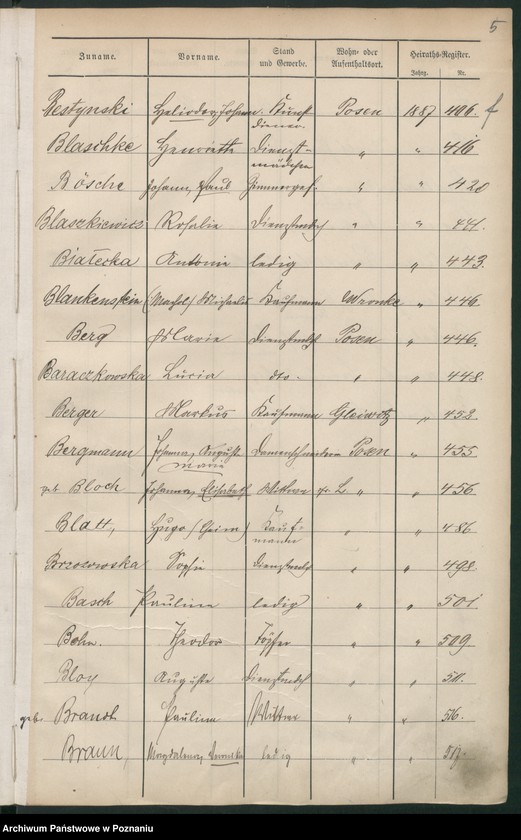 5
Zuname. Vorname. Stand und Gewerbe. Wohn- oder Aufenthaltsort. Heiraths-Register.
Jahrg. Nr.
Restynski Heliodor, Johann. Kunst diener. Posen 1887 406.
Blaschke Henriette Dienst-mädchen " " 416
Bösche Johann, Paul Zimmerges. " " 420
Blaszkiewicz Rosalie Dienstmdch " " 441.
Białecka Antonie ledig " " 443.
Blankenstein (Machol) Michaelis Kaufmann Wronke " 446.
Berg Marie Dienstmdch Posen " 446.
Baraczkowska Lucia dto. " " 448.
Berger Markus Kaufmann Gleiwitz " 452
Bergmann Johanna, Auguste Marie Damenschneiderin Posen " 455
geb Bloch Johanna, Elisabeth Wittwe " " 456.
Blatt, Hugo (Chaim) Kauf-mann " " 486
Brzozowska Sophie Dienstmdch " " 498.
Basch Pauline ledig " " 501
Behn. Theodor Töpfer " " 509
Bloy Auguste Dienstmdch " " 511.
geb. Brandt Pauline Wittwe " " 516.
Braun, Magdalena, Veronika ledig " 517.
Archiwum Państwowe w Poznaniu